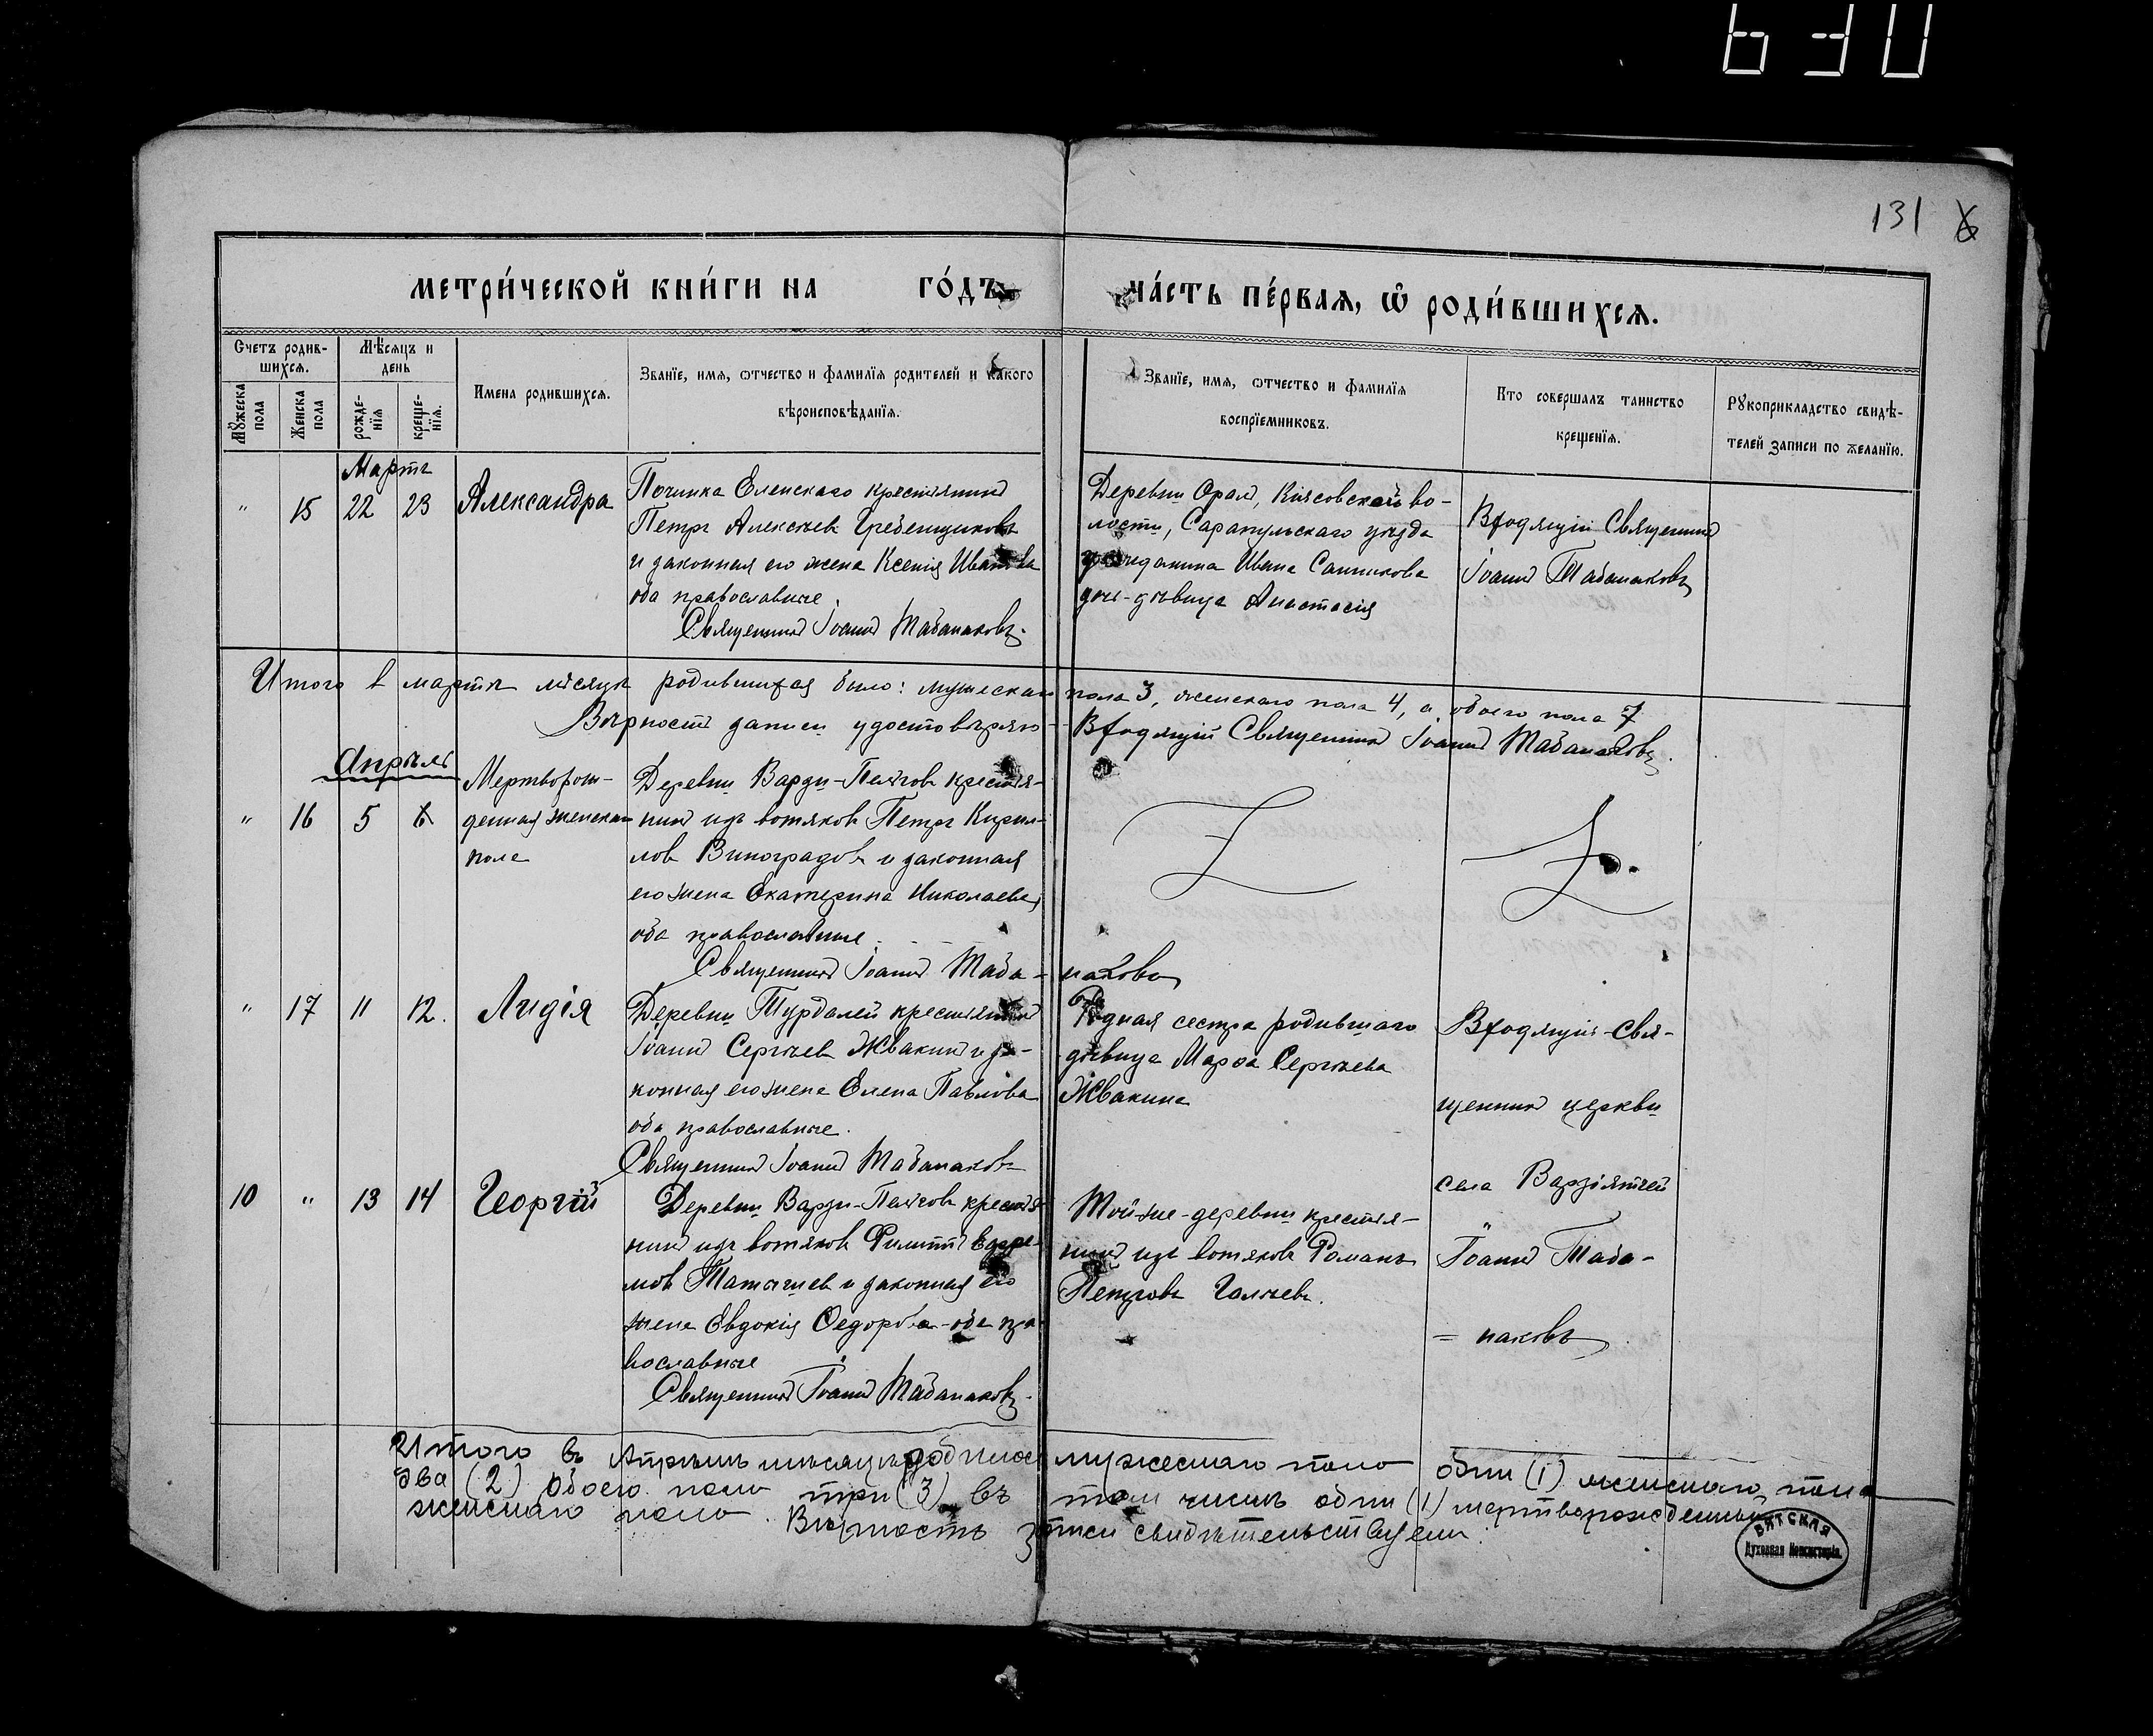 630
131
метри́ческой кни́ги на го́дъ
ча́сть пе́рвая, ѿ роди́вшихся.
Счетъ родив-
шихся.
Мѣсяцъ и
день
Мужеска
пола
Женска
пола
рожде-
нія
креще-
нія.
Имена родившихся.
Званіе, имя, отчество и фамилія родителей и какого
вѣроисповѣданія.
Званіе, имя, отчество и фамилія
воспріемниковъ.
Кто совершалъ таинство
крещенія.
Рукоприкладство свидѣ-
телей записи по желанію.
Мартъ
" 15 22 23 Александра
Починка Еленскаго крестьянинъ
Петръ Алексѣевъ Гребенщиковъ
и законная его жена Ксенія Иванова
оба православные.
Священникъ Іоаннъ Табанаковъ.
Деревни Орал, Киясовской во-
лости, Сарапульскаго уѣзда
гражданина Ивана Санникова
дочь-дѣвица Анастасія
Входящій Священникъ
Іоаннъ Табанаковъ
Итого в мартѣ мѣсяцѣ родившихся было: мужескаго пола 3, женскаго пола 4, а обоего пола 7
Вѣрность записи удостовѣряю - Входящій Священникъ Іоаннъ Табанаковъ.
Апрѣль
" 16 5 6
Мертворож-
денная женскаго
пола
Деревни Варзи-Пельгов крестья-
нинъ изъ вотяковъ Петръ Кирил-
ловъ Виноградовъ и законная
его жена Екатерина Николаева,
оба православные.
Священникъ Іоаннъ Таба-
наковъ
" 17 11 12. Лидія
Деревни Турдалей крестьянинъ
Іоаннъ Сергѣевъ Жвакинъ и за-
конная его жена Елена Павлова
оба православные.
Священникъ Іоаннъ Табанаковъ
Родная сестра родившаго
дѣвица Марѳа Сергѣева
Жвакина
Входящій Свя-
щенникъ церкви
села Варзіятчей
Іоаннъ Таба-
= наковъ
10 " 13 14 Георгій
Деревни Варзи-Пельгов крестья-
нинъ изъ вотяковъ Филиппъ Ефре-
мовъ и законная его
жена Евдокія Ѳедорова - оба пра-
вославные
Священникъ Іоаннъ Табанаковъ.
Той-же деревни крестья-
нинъ изъ вотяковъ Романъ
Петровъ Галѣевъ.
Итого въ Апрѣлѣ мѣсяцѣ родилось мужескаго пола одинъ (1) женскаго пола
два (2) обоего пола три (3) въ томъ числѣ одинъ (1) мертворожденный
женскаго пола. Вѣрность записи свидѣтельствуемъ.
ВЯТСКАЯ
Духовная Консисторія.